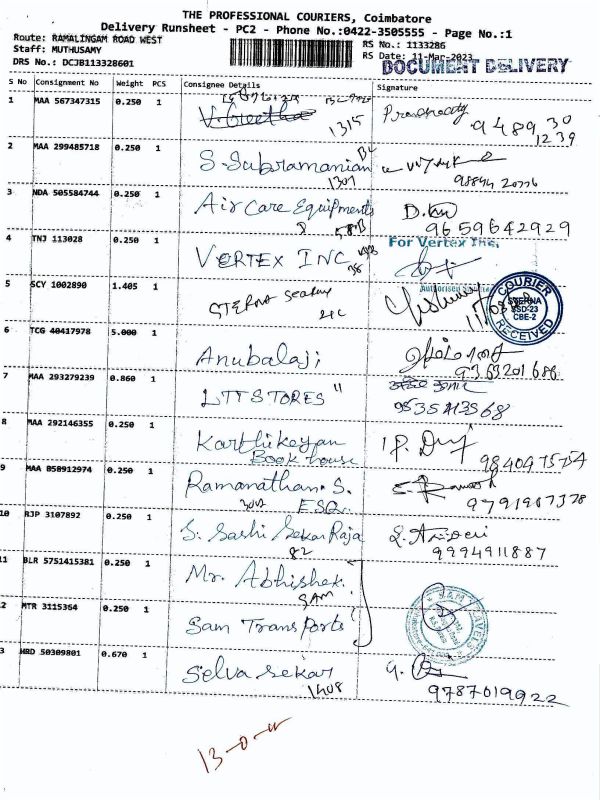 THE PROFESSIONAL COURIERS, Coimbatore
Delivery Runsheet - PC2 - Phone No.:0422-3505555 - Page No.:1
Route: RAMALINGAM ROAD WEST
RS No.: 1133286
Staff: MUTHUSAMY
RS Date: 11-Mar-2023
DRS No.: DCJB113328601
DOCUMENT DELIVERY
S No Consignment No Weight PCS Consignee Details Signature
1 MAA 567347315 0.250 1 V. Geetha
1315
9489 30
1239
2 MAA 299485718 0.250 1 S. Subramanian
1301
3 NDA 505584744 0.250 1 Air Care Equipments
8 58B
9659642929
4 TNJ 113028 0.250 1 VERTEX INC
38
For Vertex Inc,
5 SCY 1002890 1.405 1
COURIER
STERNA
SSD-23
CBE-2
RECEIVED
6 TCG 40417978 5.000 1 Anubalaji
9363201686
7 MAA 293279239 0.860 1 LTTSTORES "
8 MAA 292146355 0.250 1 Karthikeyan
Book house
9 MAA 858912974 0.250 1 Ramanathan. S.
302 ESQ
9791967378
10 RJP 3107892 0.250 1 S. Sashi Sekar Raja
82
9994911887
11 BLR 5751415381 0.250 1 Mr. Abhishek.
SAM
2 MTR 3115364 0.250 1 Sam Transports
3 HRD 50309801 0.670 1 Selva Sekar
1408
9787019922